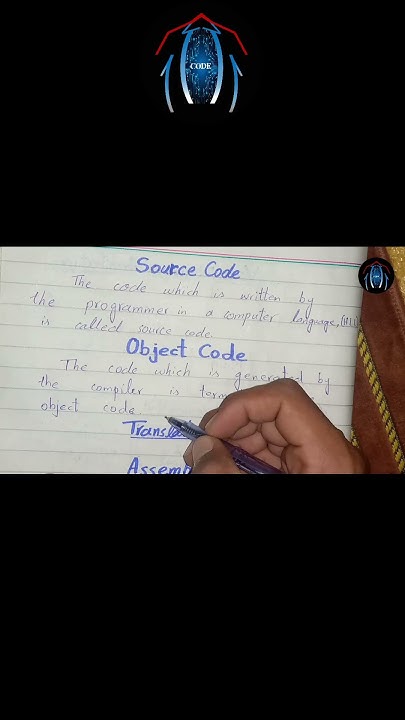 CODE
Source Code
The code which is written by
the programmer in a computer language, (HLL)
is called source code.
Object Code
The code which is generated by
the compiler is
object code.